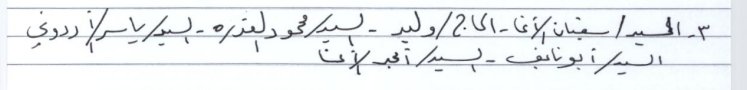 ٣- السيد/ سفيان الأغا - الحاج/ وليد - السيد/ محمود القدره - السيد/ ياسر/ أردوني
السيد/ أبو نايف - السيد/ أمجد الأغا